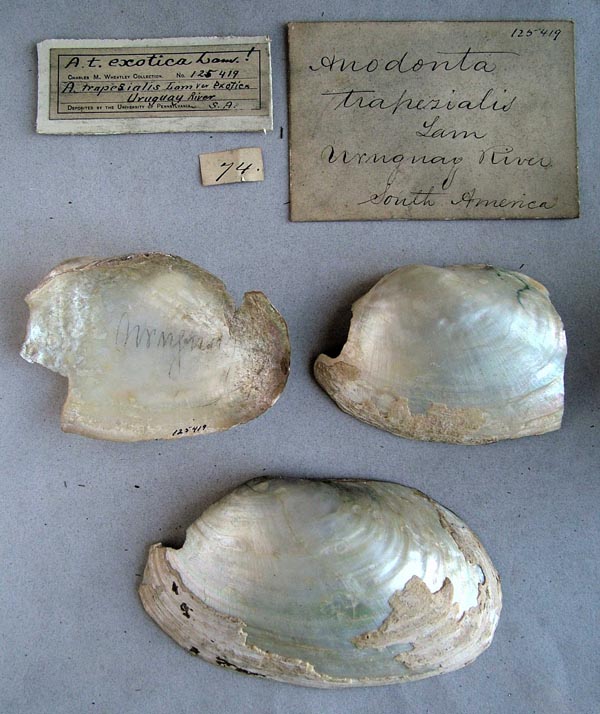 A. t. exotica Lam. !
CHARLES M. WHEATLEY COLLECTION. No. 125419
A. trapezialis Lam var exotica
Uruguay River
DEPOSITED BY THE UNIVERSITY OF PENNSYLVANIA. S. A.
74.
125419
Anodonta
trapezialis
Lam
Uruguay River
South America
125419